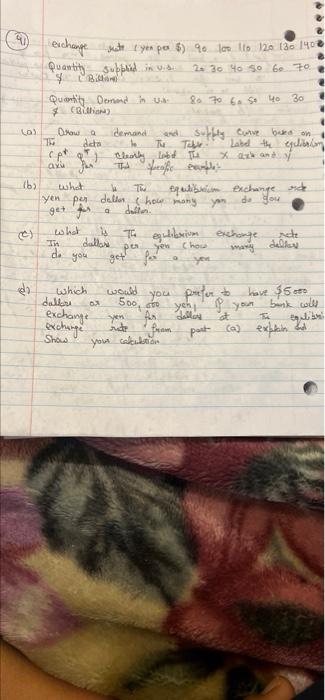 exchange rate (yen per $) 90 100 110 120 130 140
Quantity supplied in U.S. 20 30 40 50 60 70
$ (Billions)
Quantity Demand in U.S. 80 70 60 50 40 30
$ (Billions)
(a) Draw a demand and supply curve based on
The data in The Table. Label the equilibrium
(p* q*) clearly label The X axis and y
axis for This specific example.
(b) what is The equilibrium exchange rate
yen per dollar (how many yen do you
get for a dollar.
(c) what is The equilibrium exchange rate
In dollars per yen (how many dollars
do you get for a yen
d) which would you prefer to have $5000
dollars or 500,000 yen, if your bank will
exchange yen for dollars at The equilibri
exchange rate from part (a) explain and
Show your calculation